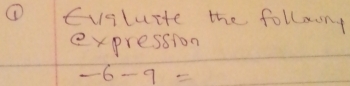 ① Evaluate the following
expression
-6-9 =